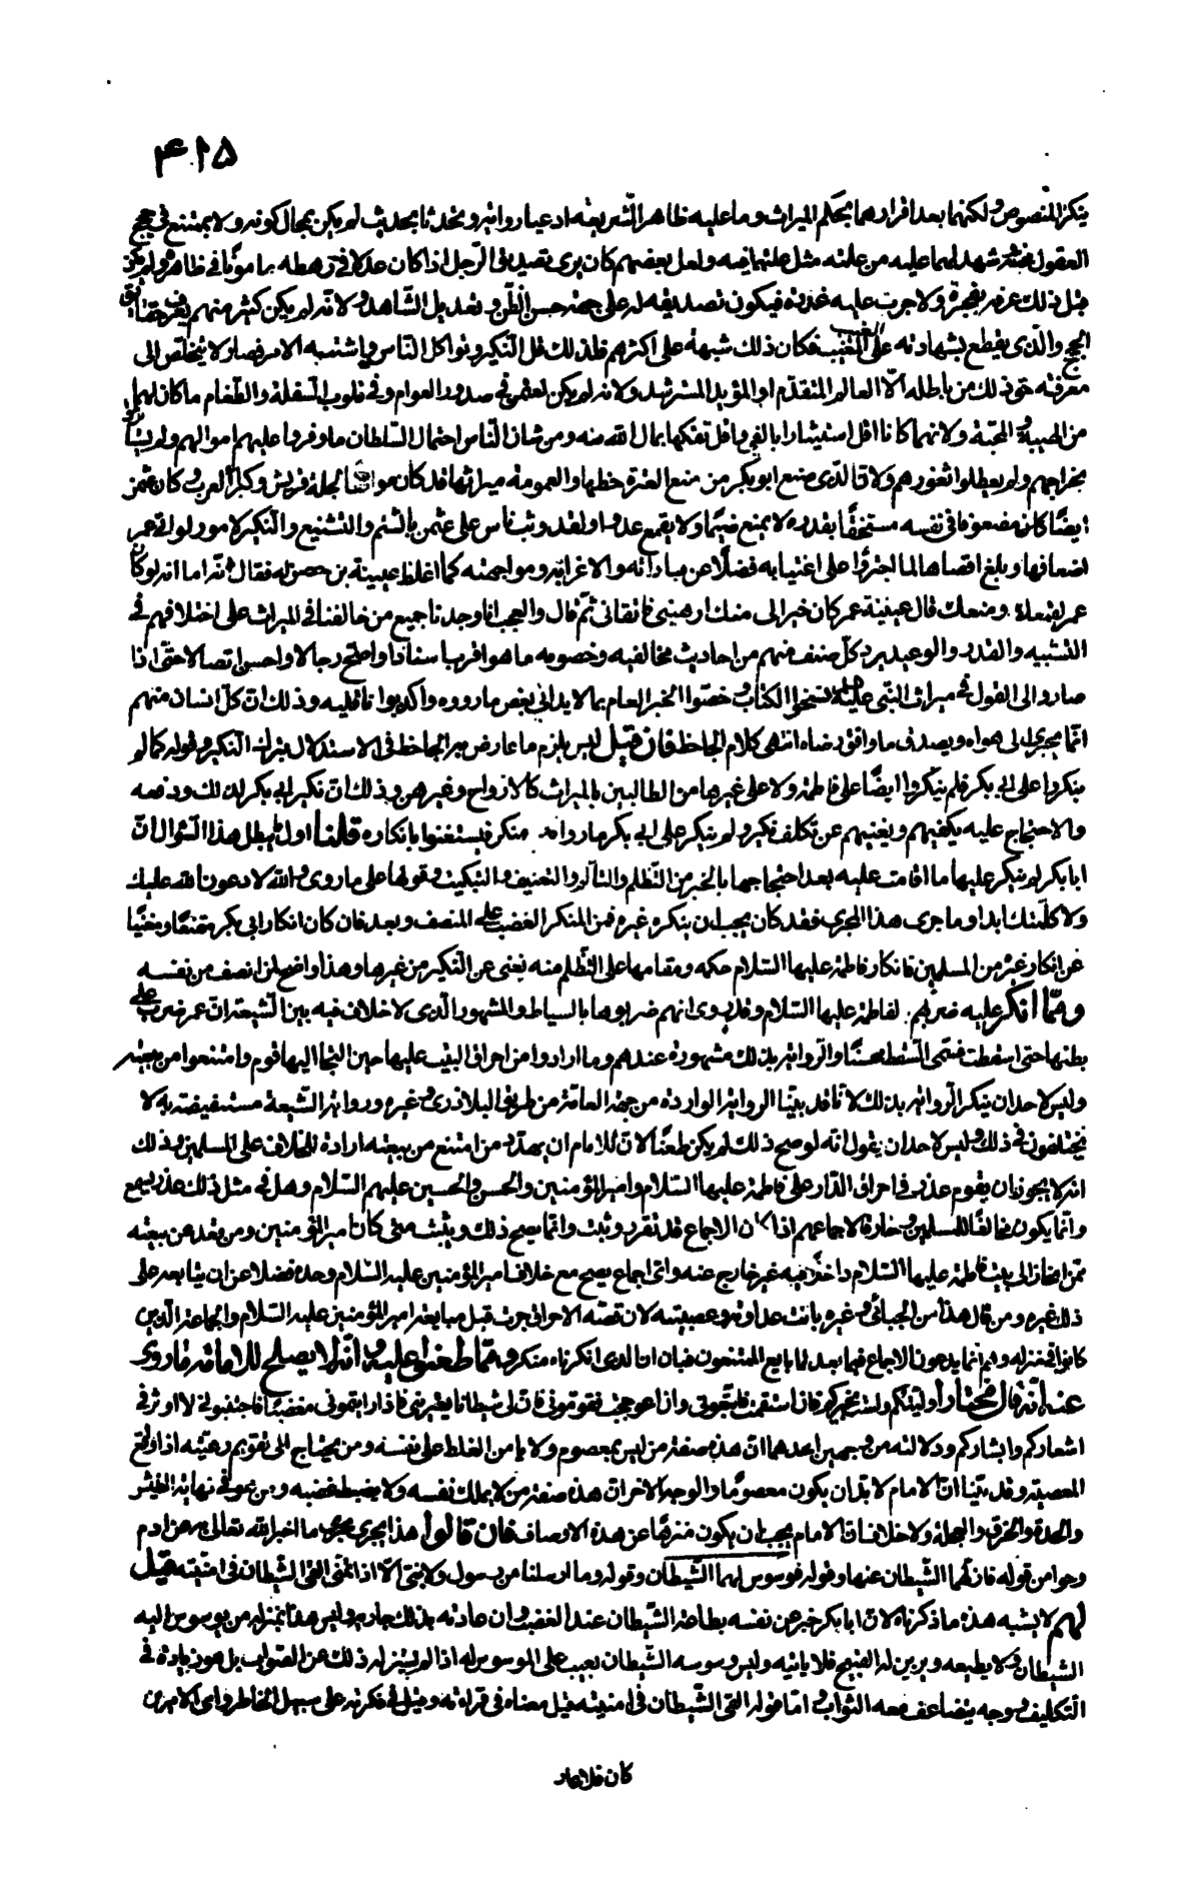 ۴۱۵
ينكر المنصوص ولكنهما بعد اقرارهما بحكم الميراث وما عليه ظاهر الشريعة ادعيا رواية وتحدثا بحديث لم يكن بمحال كونه ولا يمتنع في حجج
العقول مجيئه وشهد لهما عليه من علته مثل علتهما فيه ولعل بعضهم كان يرى تصديق الرجل اذا كان عدلا في رهطه مامونا في ظاهره ولم يكن
قبل ذلك عرفه بفجرة ولا جرت عليه غدرة فيكون تصديقه له على جهة حسن الظن وتعديل الشاهد ولانه لم يكن كثير منهم يعرف حقايق
الحجج والذي يقطع بشهادته على الغيب فكان ذلك شبهة على اكثرهم فلذلك قل النكير وتواكل الناس واشتبه الامر فصار لا يتخلص الى
معرفة حق ذلك من باطله الا العالم المتقدم او المؤيد المسترشد ولانه لم يكن لعثمن في صدور العوام وفي قلوب السفلة والطغام ما كان لهما
من الهيبة والمحبة ولانهما كانا اقل استيثارا بالفي واقل تفكها بمال الله منه ومن شان الناس اهمال السلطان ما وفر عليهم اموالهم ولم يستاثر
بخراجهم ولم يعطلوا ثغورهم ولان الذي صنع ابو بكر من منع العترة حظها والعمومة ميراثها قد كان موافقا لجلة قريش وكبراء العرب وكان عثمن
ايضا كان مضعوفا في نفسه مستخفا بقدره لا يمنع ضيما ولا يقمع عدوا ولقد وثب ناس على عثمن بالشتم والتشنيع والنكير لامور لو اتى عمر
اضعافها وبلغ اقصاها لما اجترؤا على اغتيابه فضلا عن مباداته والاغراء به ومواجهته كما اغلظ عيينة بن حصن له فقال له اما انه لو كان
عمر لقمعك ومنعك قال عيينة عمر كان خيرا لي منك ارهبني فاتقاني ثم قال والعجب انا وجدنا جميع من خالفنا في الميراث على اختلافهم في
التشبيه والقدر والوعيد يرد كل صنف منهم من احاديث مخالفيه وخصومه ما هو اقرب اسنادا واصح رجالا واحسن اتصالا حتى اذا
صاروا الى القول في ميراث النبي عليه نسخوا الكتاب وخصوا الخبر العام بما لا يداني بعض ما رووه واكذبوا ناقليه وذلك ان كل انسان منهم
انما يجري الى هواه ويصدق ما وافق رضاه انتهى كلام الجاحظ فان قيل ليس يلزم ما عارض به الجاحظ في الاستدلال بترك النكير وقوله كما لم
ينكروا على ابي بكر فلم ينكروا ايضا على فاطمة ولا على غيرها من الطالبين بالميراث كالازواج وغيرهن وذلك ان نكير ابي بكر لذلك ودفعه
والاحتجاج عليه يكفيهم ويغنيهم عن تكلف نكير ولم ينكر على ابي بكر ما رواه منكر فيستغنوا بانكاره قلنا اول ما يبطل هذا السؤال ان
ابا بكر لم ينكر عليها ما اقامت عليه بعد احتجاجها بالخبر من التظلم والتألم والتعنيف والتبكيت وقولها على ما روى والله لادعون الله عليك
ولا كلمتك ابدا وما جرى هذا المجرى فقد كان يجب ان ينكره غيره فمن المنكر الغضب على المنصف وبعد فان كان انكار ابي بكر مقنعا ومغنيا
عن انكار غيره من المسلمين فانكار فاطمة عليها السلام حكمه ومقامها على التظلم منه يغني عن النكير من غيرها وهذا واضح لمن انصف من نفسه
ومما انكر عليه ضربهم لفاطمة عليها السلام وقد روى انهم ضربوها بالسياط والمشهور الذي لا خلاف فيه بين الشيعة ان عمر ضرب على
بطنها حتى اسقطت فسمى السقط محسنا والرواية بذلك مشهورة عندهم وما ارادوا من احراق البيت عليها حين التجأ اليها قوم وامتنعوا من بيعته
وليس لاحد ان ينكر الرواية بذلك لانا قد بينا الرواية الواردة من جهة العامة من طريق البلاذري وغيره ورواية الشيعة مستفيضة به لا
يختلفون في ذلك وليس لاحد ان يقول انه لو صح ذلك لم يكن طعنا لان للامام ان يهدد من امتنع من بيعته ارادة للخلاف على المسلمين وذلك
انه لا يجوز ان يقوم عذر في احراق الدار على فاطمة عليها السلام وامير المؤمنين والحسن والحسين عليهم السلام وهل في مثل ذلك عذر يسمع
وانما يكون مخالفا للمسلمين وخارقا لاجماعهم اذا كان الاجماع قد تقرر وثبت وانما يصح ذلك ويثبت متى كان امير المؤمنين ومن قعد عن بيعته
ممن انحاز الى بيت فاطمة عليها السلام داخلا فيه غير خارج عنه واي اجماع يصح مع خلاف امير المؤمنين عليه السلام وحده فضلا عن ان يتابعه على
ذلك غيره ومن قال هذا من الجبائي وغيره بانت عداوته وعصبيته لان قصة الاحراق جرت قبل مبايعة امير المؤمنين عليه السلام والجماعة الذين
كانوا في منزله وهم انما يدعون الاجماع فيما بعد لما بايع الممتنعون فبان ان الذي انكرناه منكر ومما طعنوا عليه به انه لا يصلح للامامة ما روى
عنه انه قال مختارا وليتكم ولست بخيركم فان استقمت فاتبعوني وان اعوججت فقوموني فان لي شيطانا يعتريني فاذا رايتموني مغضبا فاجتنبوني لا اوثر في
اشعاركم وابشاركم ودلالته من وجهين احدهما ان هذه صفة من ليس بمعصوم ولا يامن الغلط على نفسه ومن يحتاج الى تقويم رعيته اذا واقع
المعصية وقد بينا ان الامام لا بد ان يكون معصوما والوجه الاخر ان هذه صفة من لا يملك نفسه ولا يضبط غضبه ومن هو في نهاية الطيش
والحدة والخرق والعجلة ولا خلاف ان الامام يجب ان يكون منزها عن هذه الاوصاف فان قالوا هذا يجري مجرى ما اخبر الله تعالى به عن ادم
وحوا من قوله فازلهما الشيطان عنها وقوله فوسوس لهما الشيطان وقوله وما ارسلنا من رسول ولا نبي الا اذا تمنى القى الشيطان في امنيته قيل
لهم لا يشبه هذه ما ذكرناه لان ابا بكر خبر عن نفسه بطاعة الشيطان عند الغضب وان عادته بذلك جارية وليس هذا بمنزلة من يوسوس اليه
الشيطان ولا يطيعه ويزين له القبيح فلا ياتيه وليس وسوسة الشيطان بعيب على الموسوس له اذا لم يستزله ذلك عن الصواب بل هو زيادة في
التكليف ووجه يتضاعف معه الثواب واما قوله القى الشيطان في امنيته قيل معناه في قراءته وقيل في فكرته على سبيل الخاطر واي الامرين
كان فلا عار